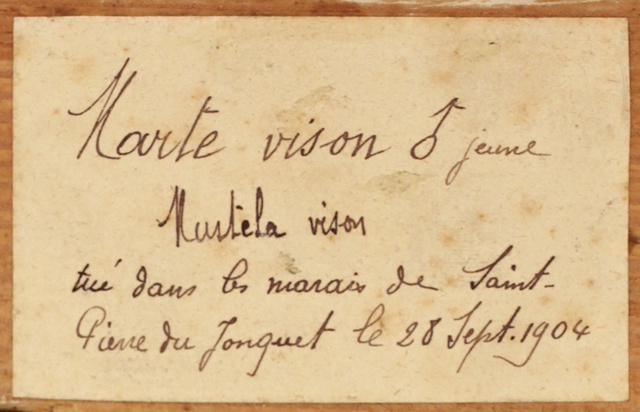 Marte vison ♂ jeune
Mustela vison
tué dans les marais de Saint-
Pierre du Jonquet le 28 Sept. 1904